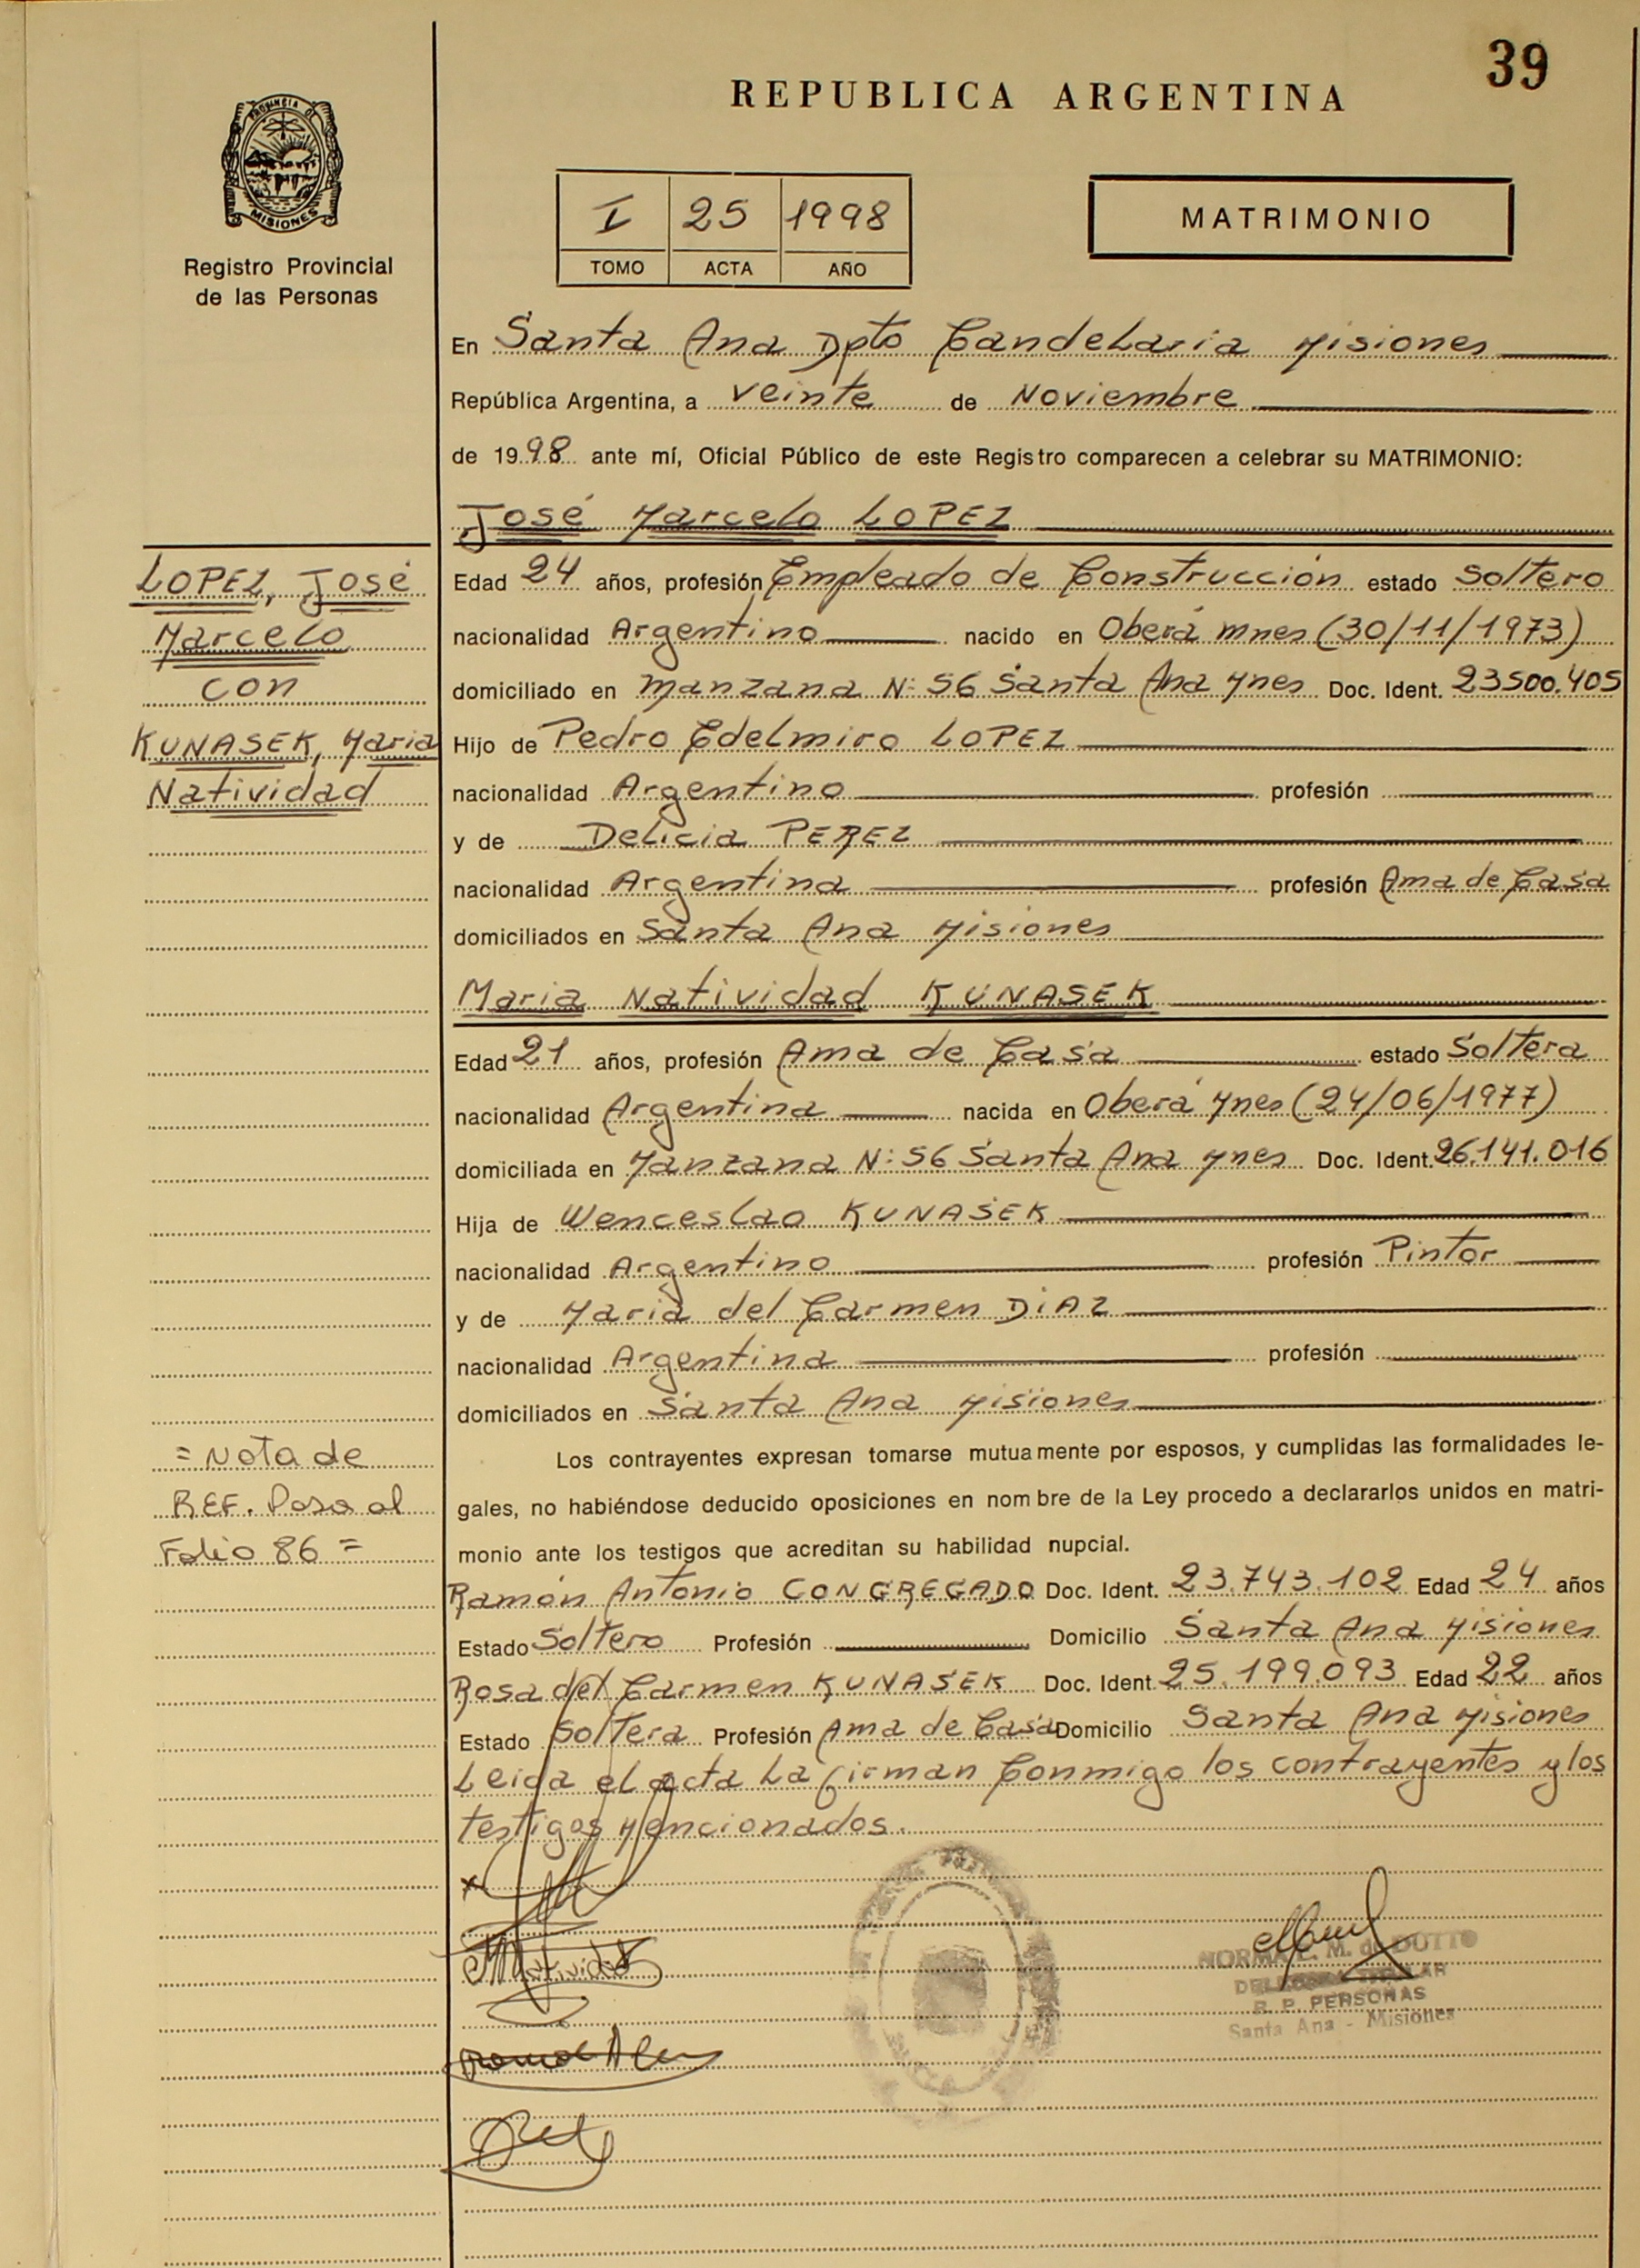 39
REPUBLICA ARGENTINA
PROVINCIA DE
MISIONES
Registro Provincial
de las Personas
I 25 1998
TOMO ACTA AÑO
MATRIMONIO
En Santa Ana Dpto Candelaria Misiones
República Argentina, a veinte de Noviembre
de 1998 ante mí, Oficial Público de este Registro comparecen a celebrar su MATRIMONIO:
José Marcelo LOPEZ
LOPEZ, José
Marcelo
con
KUNASEK, Maria
Natividad
Edad 24 años, profesión Empleado de Construcción estado Soltero
nacionalidad Argentino nacido en Oberá Mnes (30/11/1973)
domiciliado en Manzana N: 56 Santa Ana Mnes Doc. Ident. 23500.405
Hijo de Pedro Edelmiro LOPEZ
nacionalidad Argentino profesión
y de Delicia PEREZ
nacionalidad Argentina profesión Ama de Casa
domiciliados en Santa Ana Misiones
Maria Natividad KUNASEK
Edad 21 años, profesión Ama de Casa estado Soltera
nacionalidad Argentina nacida en Oberá Mnes (24/06/1977)
domiciliada en Manzana N: 56 Santa Ana Mnes Doc. Ident. 26.141.016
Hija de Wenceslao KUNASEK
nacionalidad Argentino profesión Pintor
y de Maria del Carmen DIAZ
nacionalidad Argentina profesión
domiciliados en Santa Ana Misiones
= Nota de
REF. Pasa al
Folio 86 =
Los contrayentes expresan tomarse mutuamente por esposos, y cumplidas las formalidades le-
gales, no habiéndose deducido oposiciones en nombre de la Ley procedo a declararlos unidos en matri-
monio ante los testigos que acreditan su habilidad nupcial.
Ramón Antonio CONGREGADO Doc. Ident. 23.743.102 Edad 24 años
Estado Soltero Profesión Domicilio Santa Ana Misiones
Rosa del Carmen KUNASEK Doc. Ident. 25.199.093 Edad 22 años
Estado Soltera Profesión Ama de Casa Domicilio Santa Ana Misiones
Leida el acta La firman Conmigo los contrayentes y los
testigos Mencionados.
x
NORMA L. M. de DUTTO
DELEGADA TITULAR
R. P. PERSONAS
Santa Ana - Misiones